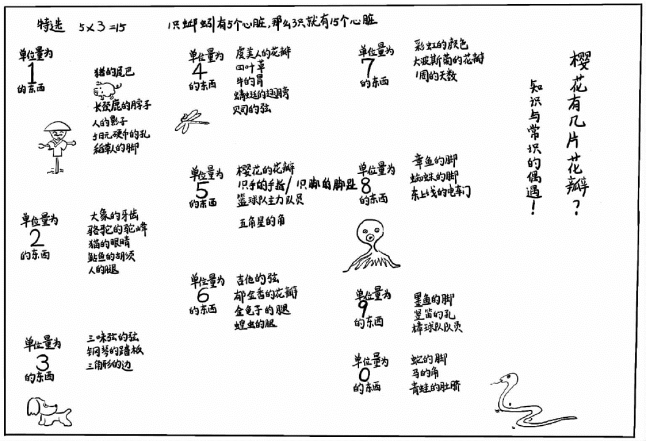 特选 5×3=15 1只蚯蚓有5个心脏，那么3只就有15个心脏
樱花有几片花瓣？
知识与常识的偶遇！
单位量为
1
的东西
猪的尾巴
长颈鹿的脖子
人的影子
5日元硬币的孔
稻草人的脚
单位量为
2
的东西
大象的牙齿
骆驼的驼峰
猫的眼睛
鲇鱼的胡须
人的腿
单位量为
3
的东西
三味弦的弦
钢琴的踏板
三角形的边
单位量为
4
的东西
虞美人的花瓣
四叶草
牛的胃
蜻蜓的翅膀
贝司的弦
单位量为
5
的东西
樱花的花瓣
1只手的手指/1只脚的脚趾
篮球队主力队员
五角星的角
单位量为
6
的东西
吉他的弦
郁金香的花瓣
金龟子的腿
蝗虫的腿
单位量为
7
的东西
彩虹的颜色
大波斯菊的花瓣
1周的天数
单位量为
8
的东西
章鱼的脚
蜘蛛的脚
东上线的电车门
单位量为
9
的东西
墨鱼的脚
竖笛的孔
棒球队队员
单位量为
0
的东西
蛇的脚
马的角
青蛙的肚脐